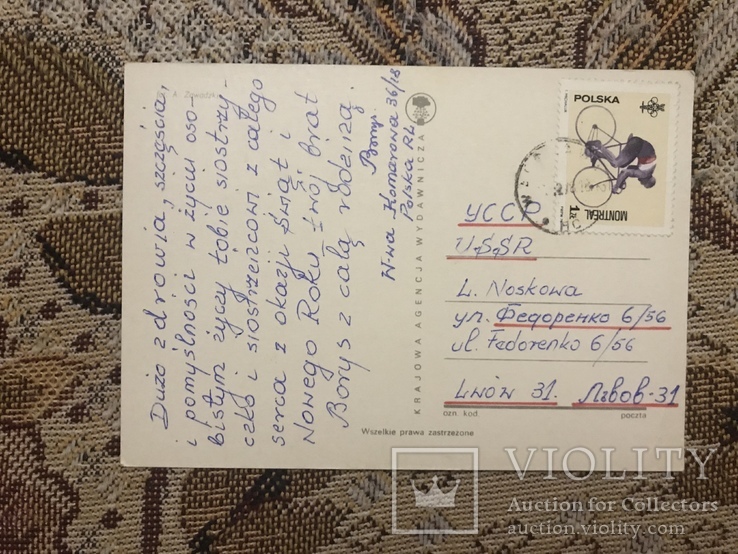 Dużo zdrowia, szczęścia,
i pomyślności w życiu oso-
bistym życzy tobie siostrzy-
czko i siostrzeńcowi z całego
serca z okazji świąt i
Nowego Roku twój brat
Borys z całą rodziną.
Borys
W-wa Komarowa 36/18
Polska RL
KRAJOWA AGENCJA WYDAWNICZA
Wszelkie prawa zastrzeżone
POLSKA
MONTREAL
1 ZŁ
УССР
USSR
L. Noskowa
ул. Федоренко 6/56
ul. Fedorenko 6/56
Lwów 31. Львов-31
ozn. kod poczta
VIOLITY
Auction for Collectors
auction.violity.com